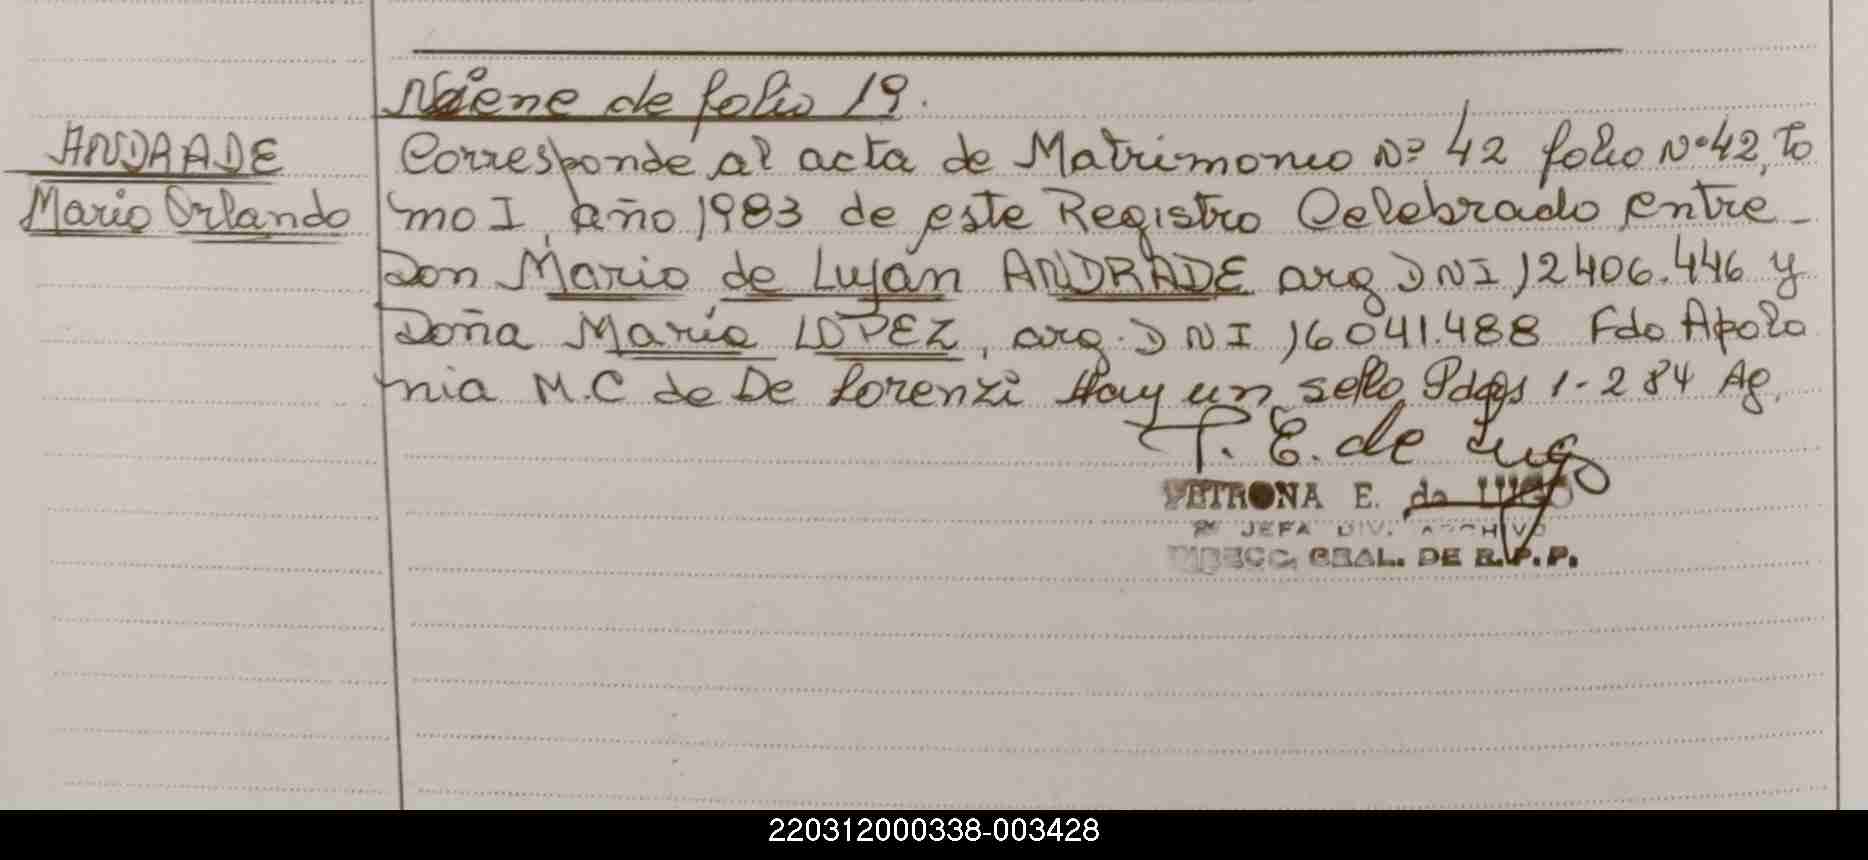 Viene de folio 19.
ANDRADE
Mario Orlando
Corresponde al acta de Matrimonio Nº 42 folio Nº 42, To
mo I, año 1983 de este Registro Celebrado entre
Don Mario de Lujan ANDRADE arg DNI 12406.446 y
Doña María LOPEZ, arg. DNI 16041.488 Fdo Apolo
nia M.C de De Lorenzi Hay un sello Pdas 1-2 84 Ag.
P. E. de Lugo
PETRONA E. de LUGO
JEFA DIV. ARCHIVO
DIRECC. GRAL. DE R.P.P.
220312000338-003428